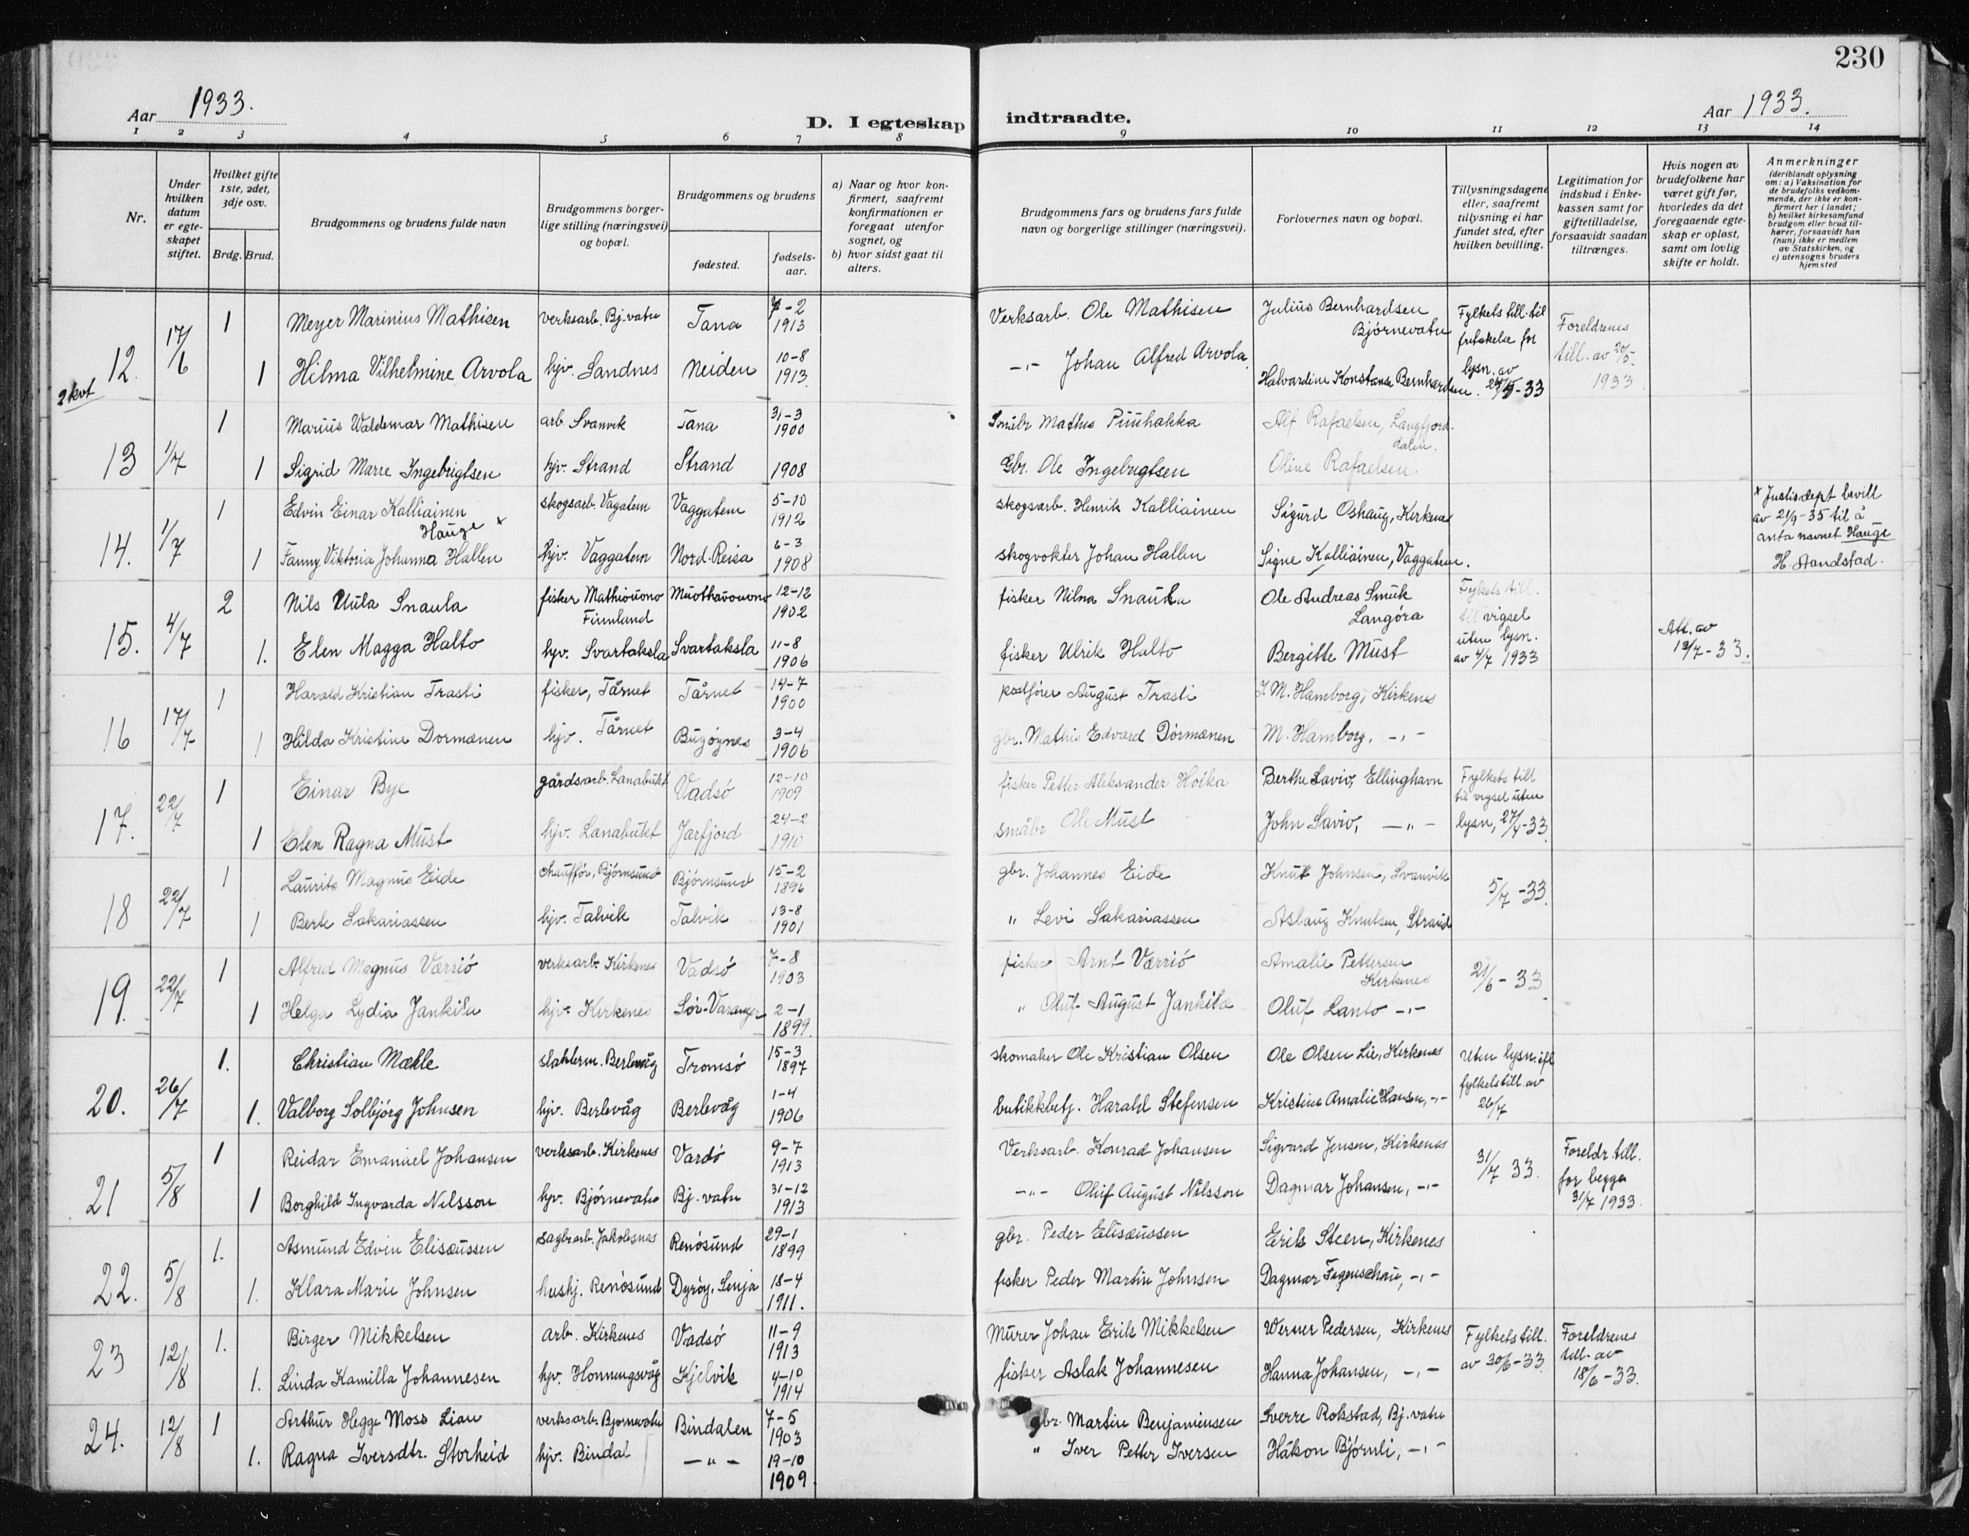 230
Aar 1933.
D. I egteskap indtraadte.
Aar 1933.
1 2 3 4 5 6 7 8 9 10 11 12 13 14
Nr.
Under hvilken datum er egteskapet stiftet.
Hvilket gifte 1ste, 2det, 3dje osv.
Brdg. Brud.
Brudgommens og brudens fulde navn
Brudgommens borgerlige stilling (næringsvei) og bopæl.
Brudgommens og brudens
fødested.
fødselsaar.
a) Naar og hvor konfirmert, saafremt konfirmationen er foregaat utenfor sognet, og
b) hvor sidst gaat til alters.
Brudgommens fars og brudens fars fulde navn og borgerlige stillinger (næringsvei).
Forlovernes navn og bopæl.
Tillysningsdagene eller, saafremt tillysning ei har fundet sted, efter hvilken bevilling.
Legitimation for indskud i Enkekassen samt for giftetilladelse, forsaavidt saadan tiltrænges.
Hvis nogen av brudefolkene har været gift før, hvorledes da det foregaaende egteskap er opløst, samt om lovlig skifte er holdt.
Anmerkninger
(deriblandt oplysning om: a) Vaksination for de brudefolks vedkommende, der ikke er konfirmert her i landet; b) hvilket kirkesamfund brudgom eller brud tilhører, forsaavidt han (hun) ikke er medlem av Statskirken, og c) utensogns bruders hjemsted
12. 17/6 1 Meyer Marinius Mathisen verksarb. Bj.vatn Tana 7-2 1913 Verksarb. Ole Mathisen Julius Bernhardsen Bjørnevatn Fylkets till. til fritakelse for lysn. av -33 Foreldrenes till. av 20/5- 1933
1 Hilma Vilhelmine Arvola hjv. Sandnes Neiden 10-8 1913 -"- Johan Alfred Arvola Halvardine Konstanse Bernhardsen.
2 kvt
13 1/7 1 Marius Waldemar Mathisen arb. Svanvik Tana 31-3 1900 Småbr Mathis Puuhakka Alf Rafaelsen, Langfjorddalen.
1 Sigrid Marre Ingebrigtsen hjv. Strand Strand 1908 Gbr. Ole Ingebrigtsen Oline Rafaelsen
14. 1/7 1 Edvin Einar Kalliainen Hauge x skogsarb. Vagatem Vaggatem 5-10 1912 skogsarb. Henrik Kalliainen Sigurd Oshaug, Kirkenes x Justisdept bevill av 21/9-35 til å anta navnet Hauge H. Sandstad.
1 Fanny Viktoria Johanna Hallen hjv. Vaggatem Nord-Reisa 6-3 1908 skogvokter Johan Hallen Signe Kalliainen, Vaggatem.
15. 4/7 2 Nils Uula Snaula fisker Mathiouono Finnland 12-12 1902 fisker Nilna Ole Andreas Smuk Langøra Fylkets till. til vigsel uten lysn. av 4/7 1933 Att. av 13/7-33.
1. Elen Magga Halto hjv. Svartaksla Svartaksla 11-8 1906 fisker Ulrik Halto Bergitte Must
16 17/7 1 Harald Kristian Trasti fisker, Tårnet Tårnet 14-7 1900 postfører August Trasti J. M. Hamborg, Kirkenes
1 Hilda Kristine Dormænen hjv. Tårnet Bugøynes 3-4 1906 gbr. Mathis Edvard Dørmænen M. Hamborg, -"-
17. 22/7 1 Einar Bye gårdsarb. Lanabukt Vadsø 12-10 1909 fisker Petter Aleksander Hoika Berthe Savio, Ellinghavn Fylkets till til vigsel uten lysn, -33
1 Elen Ragna Must hjv. Lanabukt Jarfjord 24-2 1910 småbr Ole Must John Savio, -"-
18 22/7 1 Laurits Magnus Eide chauffør, Bjørnsund Bjørnsund 15-2 1896 gbr. Johannes Eide Knut Johnsen, Svanvik 5/7-33.
1 Berte Sakariassen hjv. Talvik Talvik 13-8 1901 " Levi Sakariassen Aslaug Knutsen, Strand
19. 22/7 1 Alfred Magnus Værriö verksarb. Kirkenes Vadsø 7-8 1903 fisker Arnt Værriö Amalie Pettersen Kirkenes 21/6-33
1 Helga Lydia Jankila hjv. Kirkenes Sør-Varanger 2-1 1899. " Oluf August Jankila Oluf Lanto -"-
20. 26/7 1. Christian Mæhle slakterm. Berlevåg Tromsø 15-3 1897 skomaker Ole Kristian Olsen Ole Olsen Lie, Kirkenes Uten lysn. ifl fylkets till. av 26/7
1. Valborg Solbjörg Johnsen hjv. Berlevåg Berlevåg 1-4 1906 butikkbetj. Harald Stefensen Kristine Amalie Hansen, -"-
21 5/8 1 Reidar Emanuel Johansen verksarb. Kirkenes Vardø 9-7 1913 Verksarb. Konrad Johansen Sigvard Jensen, Kirkenes 31/7 33. Foreldr. till. for begge 31/7 1933.
1 Borghild Ingvarda Nilsson hjv. Bjørnevatn Bj. vatn 31-12 1913 -"- Oluf August Nilsson Dagmar Johansen, -"-
22. 5/8 1. Asmund Edvin Elisæussen sagbrarb. Jakobsnes Renøsund 29-1 1899 gbr. Peder Elisæussen Erik Steen, Kirkenes
1. Klara Marie Johnsen hushj. Renøsund Dyrøy, Senja 18-4 1911. fisker Peder Martin Johnsen Dagmar Figenschau, -"-
23 12/8 1. Birger Mikkelsen arb. Kirkenes Vadsø 11-9 1913 Murer Johan Erik Mikkelsen Werner Pedersen, Kirkenes Fylkets till. av 30/6-33 Foreldrenes till. av 18/6-33.
1. Linda Kamilla Johannesen hjv. Honningsvåg Kjelvik 4-10 1914 fisker Aslak Johannesen Hanna Johansen, -"-
24. 12/8 1 Arthur Hegge Moss Lian verksarb. Bjørnevatn Bindalen 7-5 1903 gbr. Martin Benjaminsen Sverre Rokstad, Bj. vatn
1. Ragna Iversdtr. Storheid hjv. Bindal -"- 19-10 1909. " Iver Petter Iversen Håkon Bjørnli, -"-